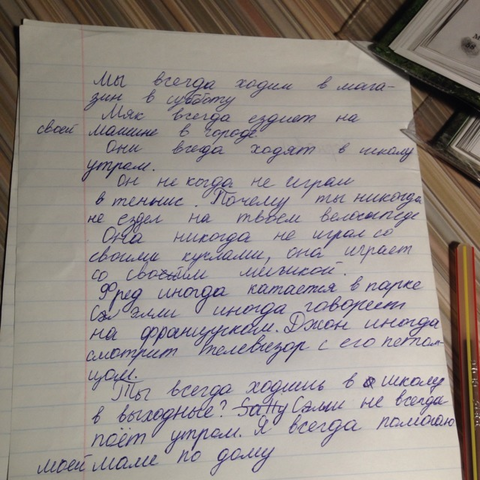 Мы всегда ходим в мага-
зин в субботу
Мяк всегда ездиет на
своей машине в городе.
Они вгеда ходят в школу
утрам.
Он не когда не играл
в теннис. Почему ты никогда
не ездел на твоем велосипеде
Она никогда не играл со
своими куклами, она играет
со своим мезикой.
Фред иногда катается в парке
Сэлли иногда говореет
на француском. Джон иногда
смотрит телевизор с его петом-
цом.
Ты всегда ходишь в школу
в выходные? Sally Сэлли не всегда
поёт утром. Я всегда помогаю
моей маме по дому